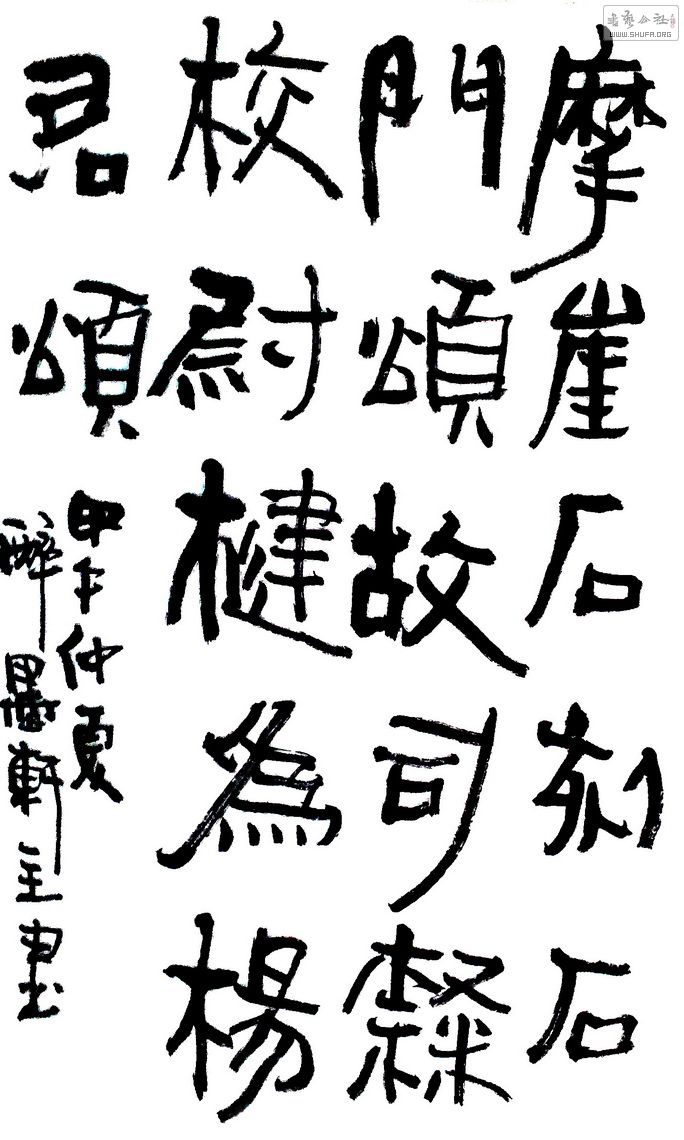 摩崖石刻石
門頌故司隸
校尉楗為楊
君頌
甲午仲夏
醉墨軒主書
WWW.SHUFA.ORG